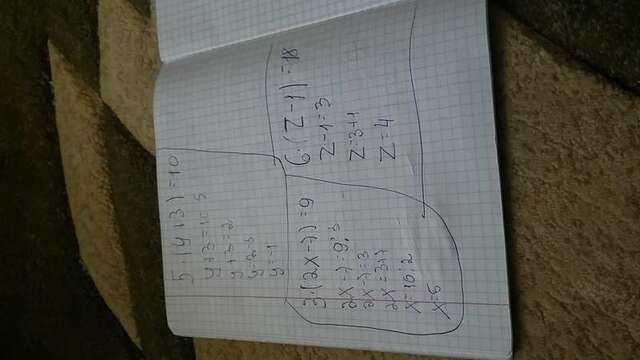 5·(y+3)=10
y+3=10:5
y+3=2
y=2-3
y=-1
3·(2x-7)=9
2x-7=9:3
2x-7=3
2x=3+7
x=10:2
x=5
6·(z-1)=18
z-1=3
z=3+1
z=4